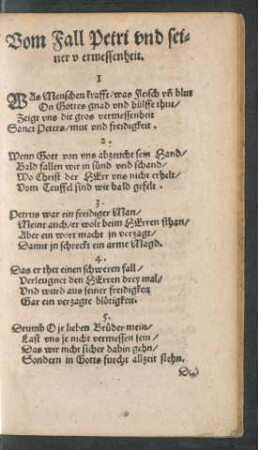 Vom Fall Petri vnd sei-
ner vermessenheit.
1
WAs Menschen krafft/was fleisch vñ blut
On Gottes gnad vnd hülffe thut/
Zeigt vns die gros vermessenheit
Sanct Peters/mut vnd freidigkeit.
2.
Wenn Gott von vns abzeucht sein Hand/
Bald fallen wir in sünd vnd schand/
Wo Christ der HErr vns nicht erhelt/
Vom Teuffel sind wir bald gefelt.
3.
Petrus war ein freidiger Man/
Meint auch/er wolt beim HErren sthan/
Aber ein wort macht jn verzagt/
Damit jn schreckt ein arme Magd.
4.
Das er thet einen schweren fall/
Verleugnet den HErren drey mal/
Vnd ward aus seiner freidigkeit
Gar ein verzagte blötigkeit.
5.
Drumb O jr lieben Brüder mein/
Last vns je nicht vermessen sein/
Das wir nicht sicher dahin gehn/
Sondern in Gotts furcht allzeit stehn.